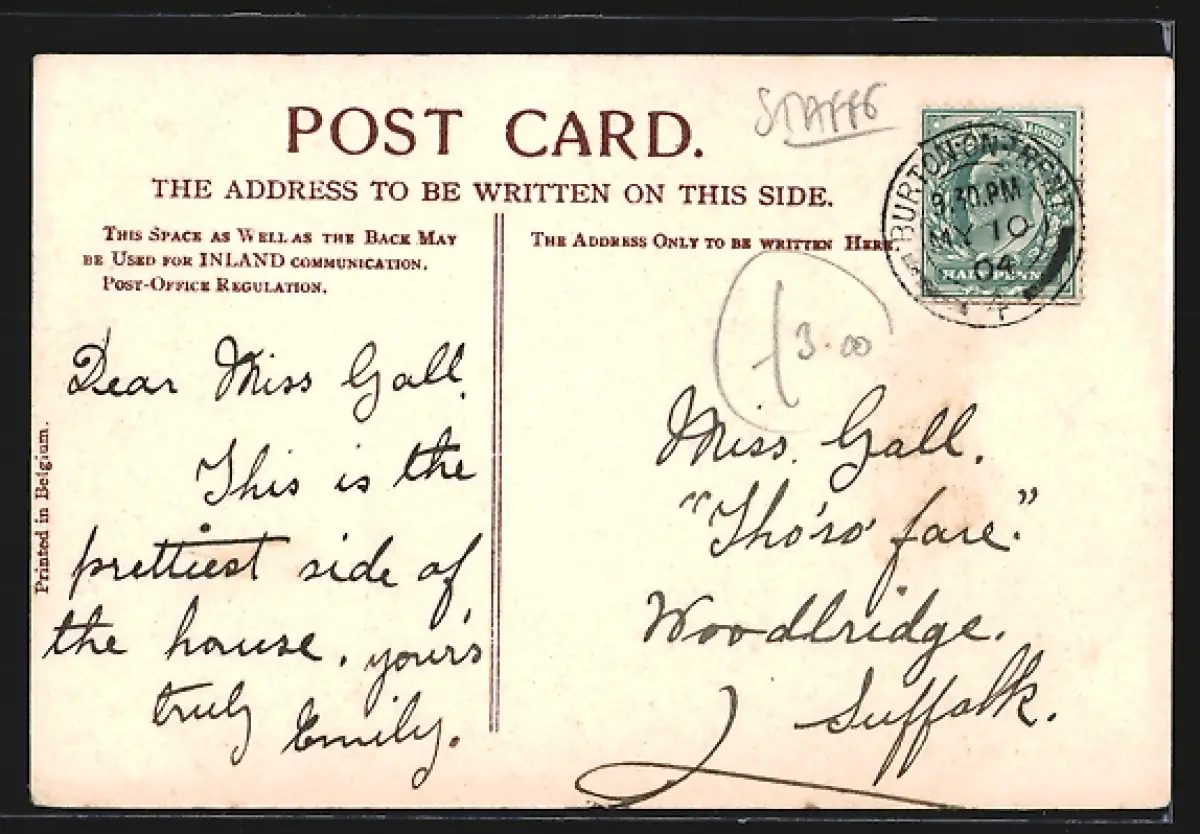 STAFFS
POST CARD.
THE ADDRESS TO BE WRITTEN ON THIS SIDE.
THIS SPACE AS WELL AS THE BACK MAY
BE USED FOR INLAND COMMUNICATION.
POST-OFFICE REGULATION.
THE ADDRESS ONLY TO BE WRITTEN HERE.
BURTON-ON-TRENT
9.30.PM
MY 10
04
HALFPENNY
£3.00
Dear Miss Gall.
This is the
prettiest side of
the house. your's
truly Emily.
Miss. Gall.
"Tho'ro' fare."
Woodbridge.
Suffolk.
Printed in Belgium.